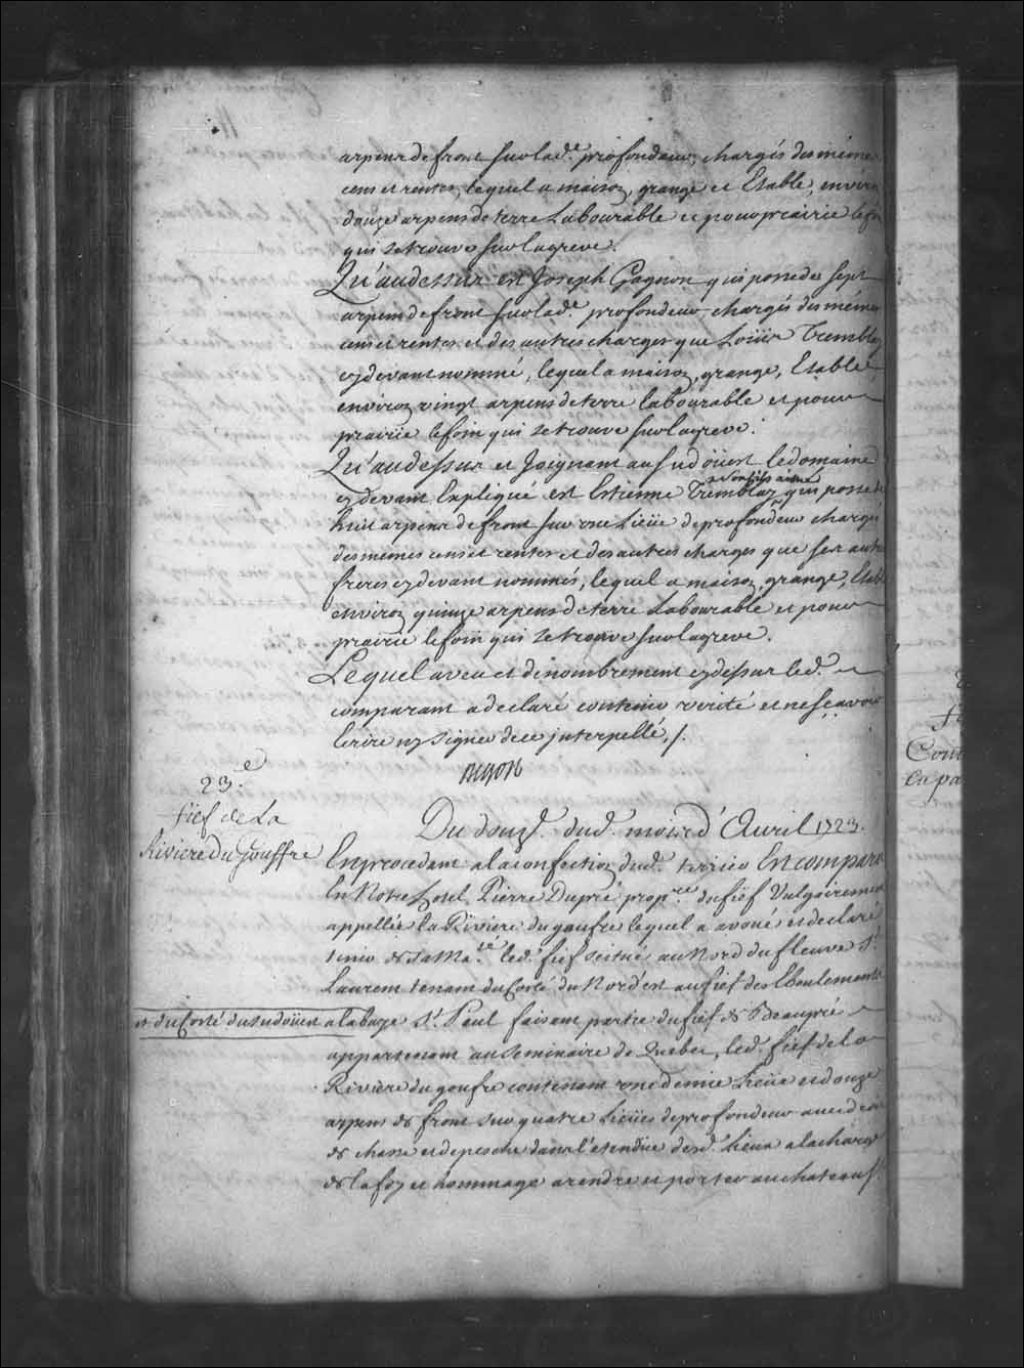 arpens de front sur lad.e profondeur, chargés des mêmes
cens et rentes, lequel a maison, grange et Etable, environ
douze arpens de terre Labourable et pour prairie le foin
qui se trouve sur la greve.
Qu'audessus est Joseph Gagnon qui possede sept
arpens de front sur lad.e profondeur chargés des mêmes
cens et rentes et des autres charges que Loüis Tremblay
cy devant nommé, lequel a maison, grange, Etable,
environ vingt arpens de terre labourable et pour
prairie le foin qui se trouve sur la greve.
Qu'audessus et Joignant au sudoüest le domaine
cy devant Expliqué est Estienne Tremblay qui possede
huit arpens de front sur une Lieüe de profondeur chargés
des mêmes cens et rentes et des autres charges que ses autres
freres cy devant nommés, lequel a maison, grange, Etable
environ quinze arpens de terre Labourable et pour
prairie le foin qui se trouve sur la greve.
Lequel aveu et dénombrement cy dessus led.
comparant a declaré contenir verité et ne sçavoir
Ecrire ny signer de ce interpellé ./.
Begon
23.e
fief de La
Riviere du Gouffre
Du douz.e dud. mois d'Avril 1723.
En procedant a la confection dud. terrier Est comparu
En Notre hotel Pierre Dupré prop.re du fief Vulgairement
appellée la Riviere du goufre lequel a avoué et declaré
tenir de Sa Ma.té led. fief scitué au Nord du fleuve S.t
Laurent tenant du Costé du Nordest au fief des Eboulements
et du Costé du sudoüest a la baye S.t Paul faisant partie du fief de Beaupré
appartenant au seminaire de Quebec, led. fief de la
Riviere du goufre contenant une demie Lieüe et douze
arpens de front sur quatre Lieües de profondeur avec droit
de chasse et de pesche dans l'étendüe desd. Lieux a la charge
de la foy et hommage a rendre et porter au chateau S.t